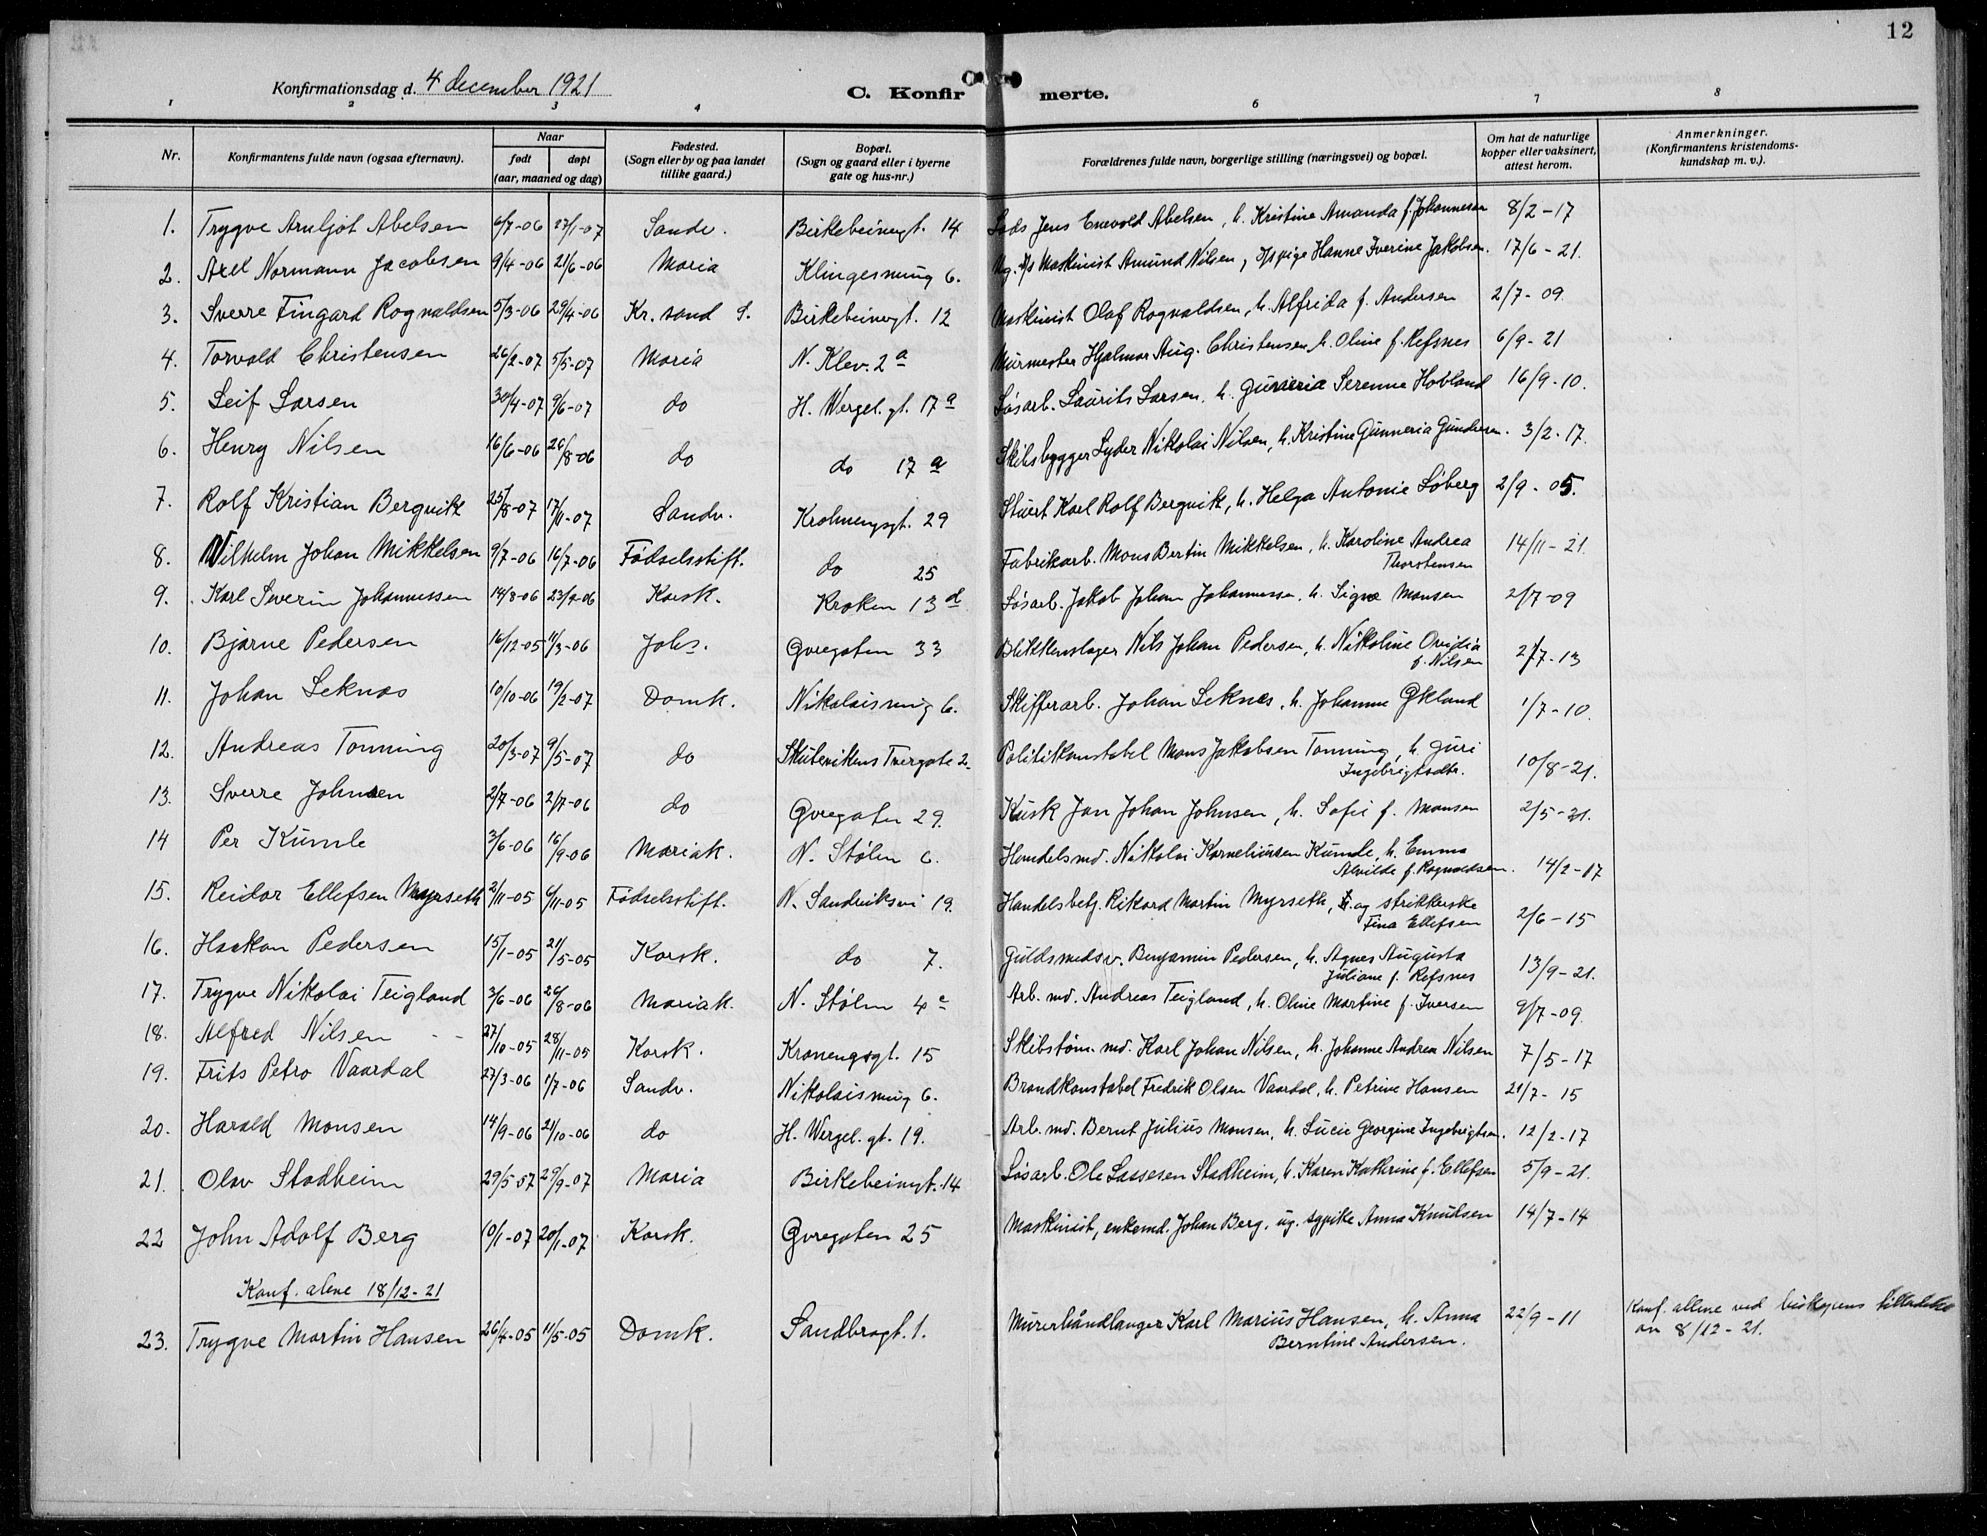 12
Konfirmationsdag d. 4 december 1921
C. Konfirmerte.
1 2 3 4 6 7 8
Nr. Konfirmantens fulde navn (ogsaa efternavn). Naar født døpt (aar, maaned og dag) Fødested. (Sogn eller by og paa landet tillike gaard.) Bopæl. (Sogn og gaard eller i byerne gate og hus-nr.) Forældrenes fulde navn, borgerlige stilling (næringsvei) og bopæl. Om hat de naturlige kopper eller vaksinert, attest herom. Anmerkninger. (Konfirmantens kristendomskundskap m. v.).
1. Trygve Arnljot Abelsen 6/7-06 27/1-07 Sandv. Birkebeinergt. 14 Lods Jens Enevold Abelsen, h. Kristine Amanda f. Johannesen 8/2-17
2. Axel Normann Jacobsen 9/4-06 21/6-06 Maria Klingesmug 6. Ug. Maskinist Amund Nilsen, pige Hanne Iverine Jakobsen. 17/6-21.
3. Sverre Fingard Rognaldsen 5/3-06 29/4-06 Kr.sand S. Birkebeinergt. 12 Maskinist Olaf Rognaldsen, h. Alfrida f. Andersen 2/7-09
4. Torvald Christensen 26/2-07 5/5-07 Maria N. Klev. 2a Murmester Hjalmar Aug. Christensen h. Oline f. Refsnes 6/9-21
5. Leif Larsen 30/4-07 9/6-07 do H. Wergel. gt. 17a Løsarb. Laurits Larsen, h. Gurieria Serenne Hovland 16/9-10.
6. Henry Nilsen 16/6-06 26/8-06 do do 17a Skibsbygger Lyder Nikolai Nilsen, h. Kristine Gunneria Gundersen. 3/2-17.
7. Rolf Kristian Bergvik 25/8-07 17/11-07 Sandv. Krohnengsgt. 29 Stuert Karl Rolf Bergvik, h. Helga Antonie Søberg 2/9-05.
8. Wilhelm Johan Mikkelsen 9/7-06 16/7-06 Fødselsstift. do 25 Fabrikarb. Mons Bertin Mikkelsen, h. Karoline Andrea Thorstensen 14/11-21.
9. Karl Severin Johannessen 14/8-06 23/9-06 Korsk. Kroken 13d Løsarb. Jakob Johan Johannessen, h. Signe Monsen 2/7-09
10. Bjarne Pedersen 16/12-05 11/3-06 Johs. Øvregaten 33 Blikkenslager Nils Johan Pedersen, h. Nikoline Ovidia f. Nilsen 2/7-13
11. Johan Leknes 10/10-06 19/2-07 Domk. Nikolaismug 6. Skifferarb. Johan Leknes, h. Johanne Økland 1/7-10.
12. Andreas Tonning 20/3-07 9/5-07 do Skutevikens Tvergate 2. Politikonstabel Mons Jakobsen Tonning, h. Guri Ingebrigtsdtr. 10/8-21.
13. Sverre Johnsen 2/7-06 2/7-06 do Øvregaten 29. Kusk Jan Johan Johnsen, h. Sofie f. Monsen 2/5-21.
14 Per Kumle 3/6-06 16/9-06 Mariak. N. Stølen 6. Handelsmd. Nikolai Korneliussen Kumle, h. Emma Alvilde f. Rognaldsen. 14/2-17
15. Reidar Ellefsen Myrseth 2/11-05 6/11-05 Fødselsstift. N. Sandviksvei 19. Handelsbetj. Rikard Martin Myrseth, og strikkerske Fina Ellefsen 2/6-15
16. Haakon Pedersen 15/1-05 21/5-05 Korsk. do 7. Guldsmedsv. Benjamin Pedersen, h. Agnes Augusta Juliane f. Refsnes 13/9-21.
17. Trygve Nikolai Teigland 3/6-06 26/8-06 Mariak. N. Stølen 4c Arb. md. Andreas Teigland, h. Oline Martine f. Iversen 9/7-09.
18. Alfred Nilsen - - 27/10-05 28/11-05 Korsk. Kronengsgt. 15 Skibstøm. md. Karl Johan Nilsen, h. Johanne Andrea Nilsen 7/5-17
19. Frits Petro Vaardal 27/3-06 1/7-06 Sandv. Nikolaismug 6. Brandkonstabel Fredrik Olsen Vaardal, h. Petrine Hansen 21/7-15
20. Harald Monsen 14/9-06 21/10-06 do H. Wergel. gt. 19. Arb. md. Bernt Julius Monsen, h. Lucie Georgine Ingebrigtsen. 12/2-17
21. Olav Stadheim 29/5-07 29/9-07 Maria Birkebeinergt. 14 Løsarb. Ole Lassesen Stadheim, h. Karen Kathrine f. Ellefsen 5/9-21.
22 John Adolf Berg 10/1-07 20/1-07 Korsk. Øvregaten 25 Maskinist, enkemd. Johan Berg, ug. sypike Anna Knudsen 14/7-14
Konf. alene 18/12-21
23. Trygve Martin Hansen 26/4-05 11/5-05 Domk. Sandbrogt. 1. Murerhåndlanger Karl Marius Hansen, h. Anna Berntine Andersen. 22/9-11 Konf. allene ved biskopens tilladelse av 8/12-21.